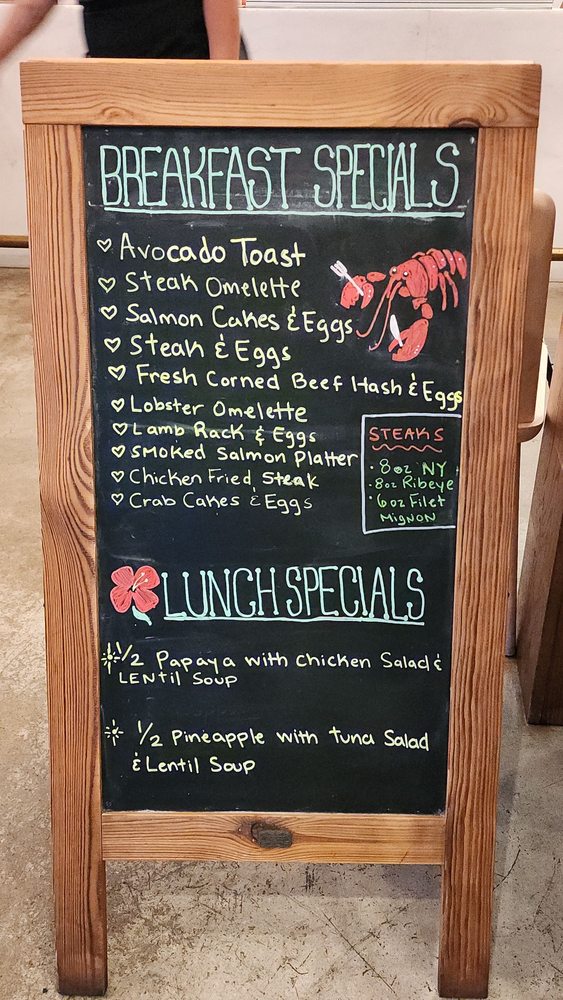 BREAKFAST SPECIALS
♡ Avocado Toast
♡ Steak Omelette
♡ Salmon Cakes & Eggs
♡ Steak & Eggs
♡ Fresh Corned Beef Hash & Eggs
♡ Lobster Omelette
♡ Lamb Rack & Eggs
♡ Smoked Salmon Platter
♡ Chicken Fried Steak
♡ Crab Cakes & Eggs
STEAKS
• 8oz NY
• 8oz Ribeye
• 6oz Filet
Mignon
LUNCH SPECIALS
1/2 Papaya with Chicken Salad &
LENtil Soup
1/2 Pineapple with Tuna Salad
& Lentil Soup